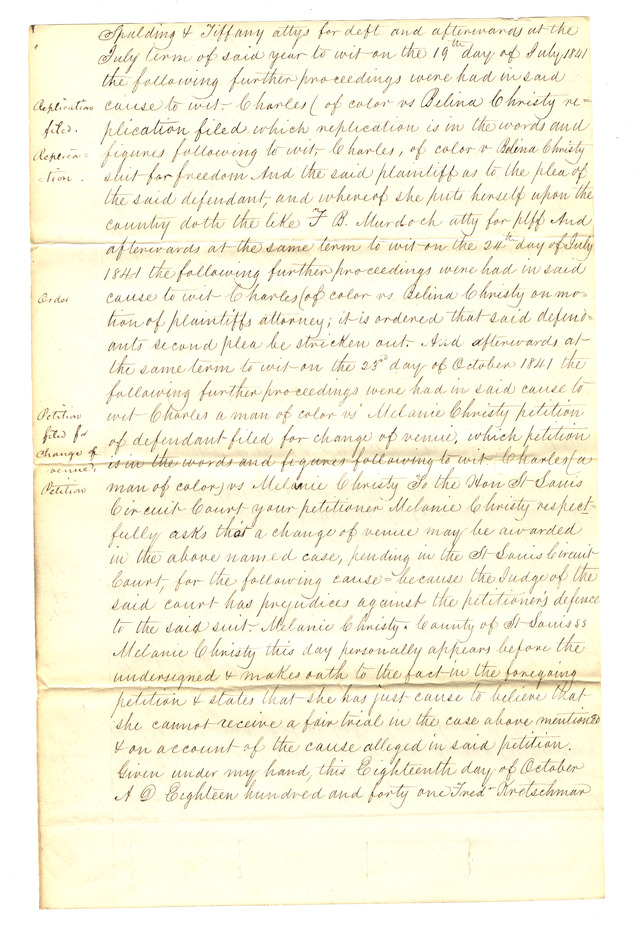 Spalding & Tiffany attys for deft and afterwards at the
July term of said year to wit on the 19th day of July 1841
the following further proceedings were had in said
Replication cause to wit - Charles (of color vs Belina Christy re=
filed. plication filed which replication is in the words and
Replica= figures following to wit. Charles, of color v Belina Christy
tion. suit for freedom And the said plaintiff as to the plea of
the said defendant, and whereof she puts herself upon the
country doth the like F. B. Murdoch atty for plff And
afterwards at the same term to wit on the 24th day of July
1841 the following further proceedings were had in said
Order cause to wit Charles (of color vs Belina Christy on mo=
tion of plaintiffs attorney; it is ordered that said defend=
ants second plea be stricken out. And afterwards at
the same term to wit on the 23rd day of October 1841 the
following further proceedings were had in said cause to
Petition wit Charles a man of color vs Melanie Christy petition
filed for of defendant filed for change of venue, which petition
change of venue, is in the words and figures following to wit. Charles (a
Petition man of color) vs Melanie Christy To the Hon St Louis
Circuit Court your petitioner Melanie Christy respect=
fully asks that a change of venue may be awarded
in the above named case, pending in the St Louis Circuit
Court, for the following cause = because the Judge of the
said court has prejudices against the petitioner's defence
to the said suit. Melanie Christy. County of St Louis ss
Melanie Christy this day personally appears before the
undersigned & makes oath to the fact in the foregoing
petition & states that she has just cause to believe that
she cannot receive a fair trial in the case above mentioned
& on account of the cause alleged in said petition.
Given under my hand, this Eighteenth day of October
A D Eighteen hundred and forty one Fredk Kretschmar